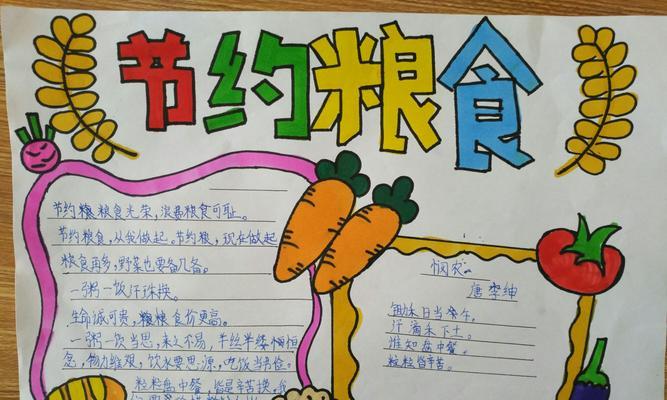 节约粮食
节约粮粮食光荣，浪费粮食可耻。
节约粮食，从我做起。节约粮，现在做起
粮食再多，野菜也要备几备。
一粥一饭汗珠换。
生命诚可贵，粮粮食价更高。
一粥一饭当思，来之不易，半丝半缕恒恒
念，物力维艰，饮水要思源，吃饭当节俭。
粒粒盘中餐，皆是辛苦换，我
悯农
唐 李绅
锄禾日当午，
汗滴禾下土。
谁知盘中餐，
粒粒皆辛苦。